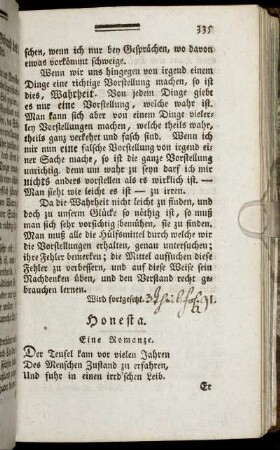 335
schen, wenn ich nur bey Gesprächen, wo davon
etwas vorkömmt schweige.
Wenn wir uns hingegen von irgend einem
Dinge eine richtige Vorstellung machen, so ist
dies, Wahrheit. Von jedem Dinge giebt
es nur eine Vorstellung, welche wahr ist.
Man kann sich aber von einem Dinge vieler-
ley Vorstellungen machen, welche theils wahr,
theils ganz verkehrt und falsch sind. Wenn ich
mir nun eine falsche Vorstellung von irgend ei-
ner Sache mache, so ist die ganze Vorstellung
unrichtig, denn um wahr zu seyn darf ich mir
nichts anders vorstellen als es wirklich ist. —
Man sieht wie leicht es ist — zu irren.
Da die Wahrheit nicht leicht zu finden, und
doch zu unserm Glücke so nöthig ist, so muß
man sich sehr vorsichtig bemühen, sie zu finden.
Man muß alle die Hülfsmittel durch welche wir
die Vorstellungen erhalten, genau untersuchen;
ihre Fehler bemerken; die Mittel aufsuchen diese
Fehler zu verbessern, und auf diese Weise sein
Nachdenken üben, und den Verstand recht ge-
brauchen lernen.
Wird fortgesetzt.
Honesta.
Eine Romanze.
Der Teufel kam vor vielen Jahren
Des Menschen Zustand zu erfahren,
Und fuhr in einen irrd'schen Leib.
Er